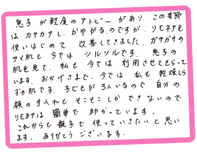 息子が軽度のアトピーがあり、この季節
はカサカサし、かゆがるのですが、リモネアを
使いはじめて、改善してきました。ガサガサの
サイ肌も今では、ツルツルです。息子の
肌を見て、私も今では利用させてもらって
います。おかげさまで、今では私も乾燥しら
ずの肌です。子どもが3人いるので自分の
顔の手入れもそこそこしかできないので
リモネアは簡単で助かっています。
これからも親子で使っていきたいと思い
ます。ありがとうございます。